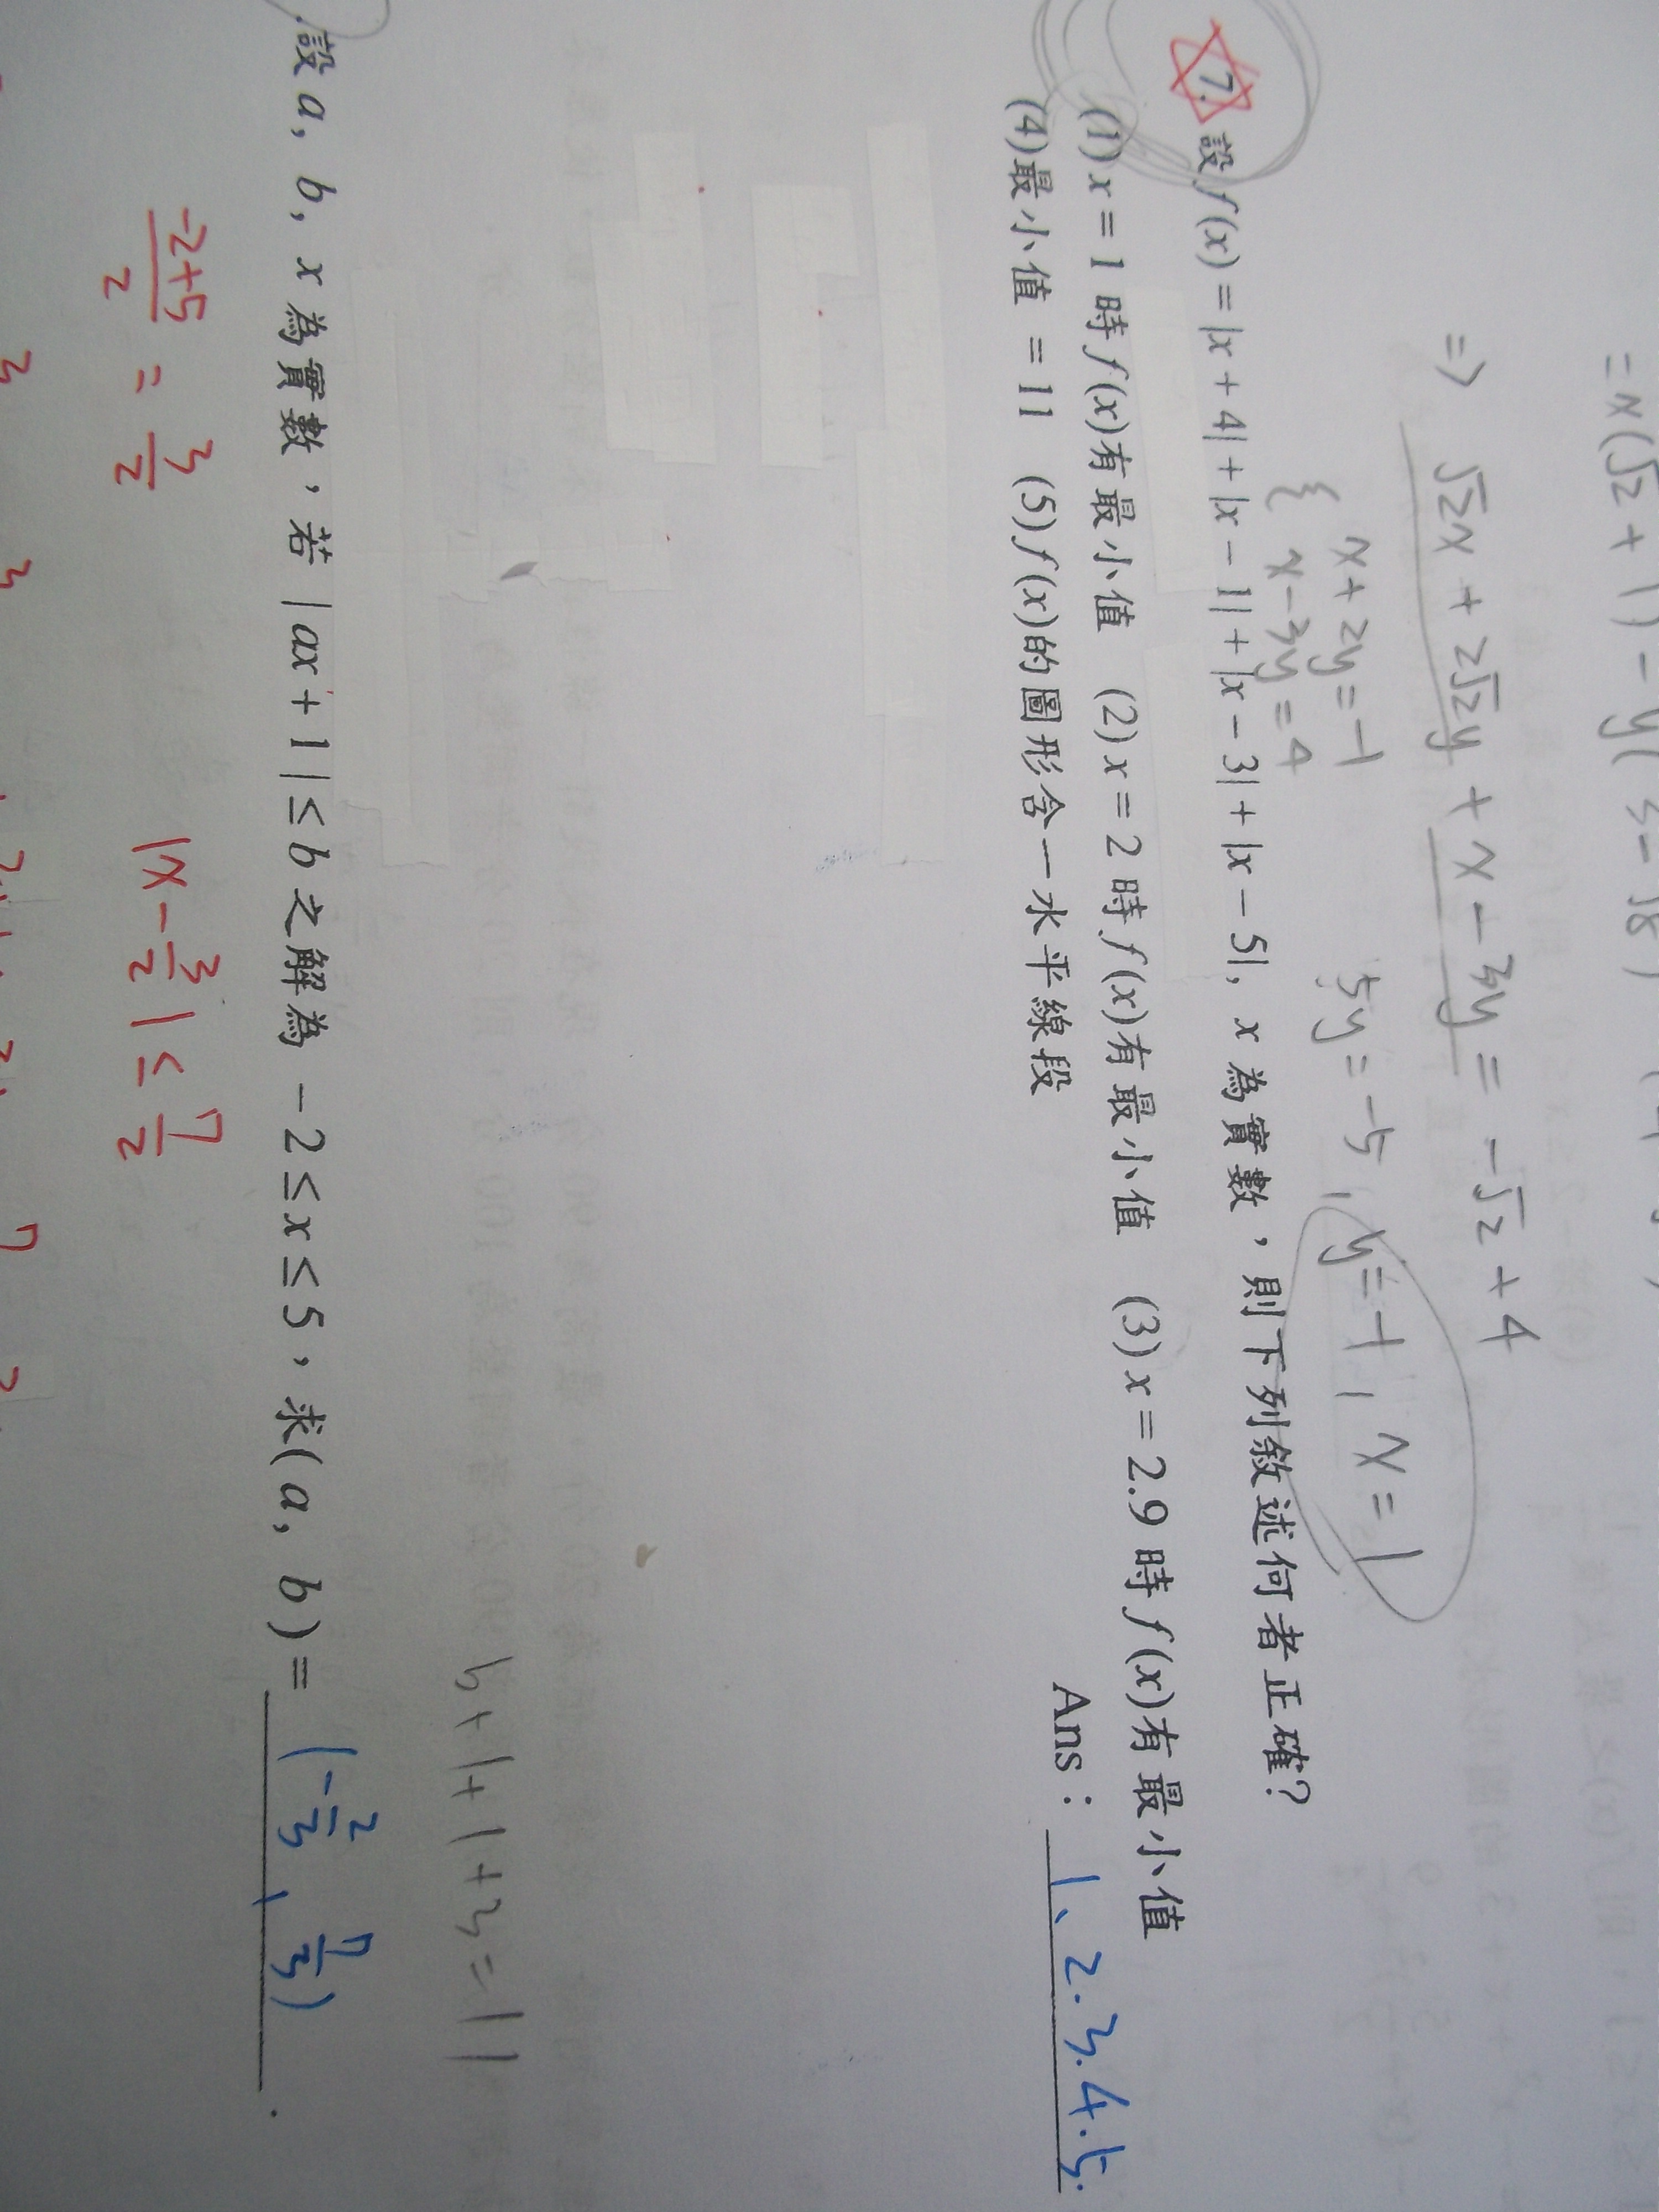 = x(√2 + 1) - y(3 - √8)
=> √2x + 2√2y + x - 3y = -√2 + 4
{ x + 2y = -1
x - 3y = 4
5y = -5, y = -1, x = 1
7. 設 f(x) = |x + 4| + |x - 1| + |x - 3| + |x - 5|, x 為實數,則下列敘述何者正確?
(1) x = 1 時 f(x)有最小值 (2) x = 2 時 f(x)有最小值 (3) x = 2.9 時 f(x)有最小值
(4)最小值 = 11 (5) f(x)的圖形含一水平線段
Ans: 1、2.3.4.5.
6+1+1+3=11
設 a, b, x 為實數,若 |ax + 1| ≤ b 之解為 -2 ≤ x ≤ 5,求(a, b) = (-2/3, 7/3).
-2+5/2 = 3/2 |x - 3/2| ≤ 7/2